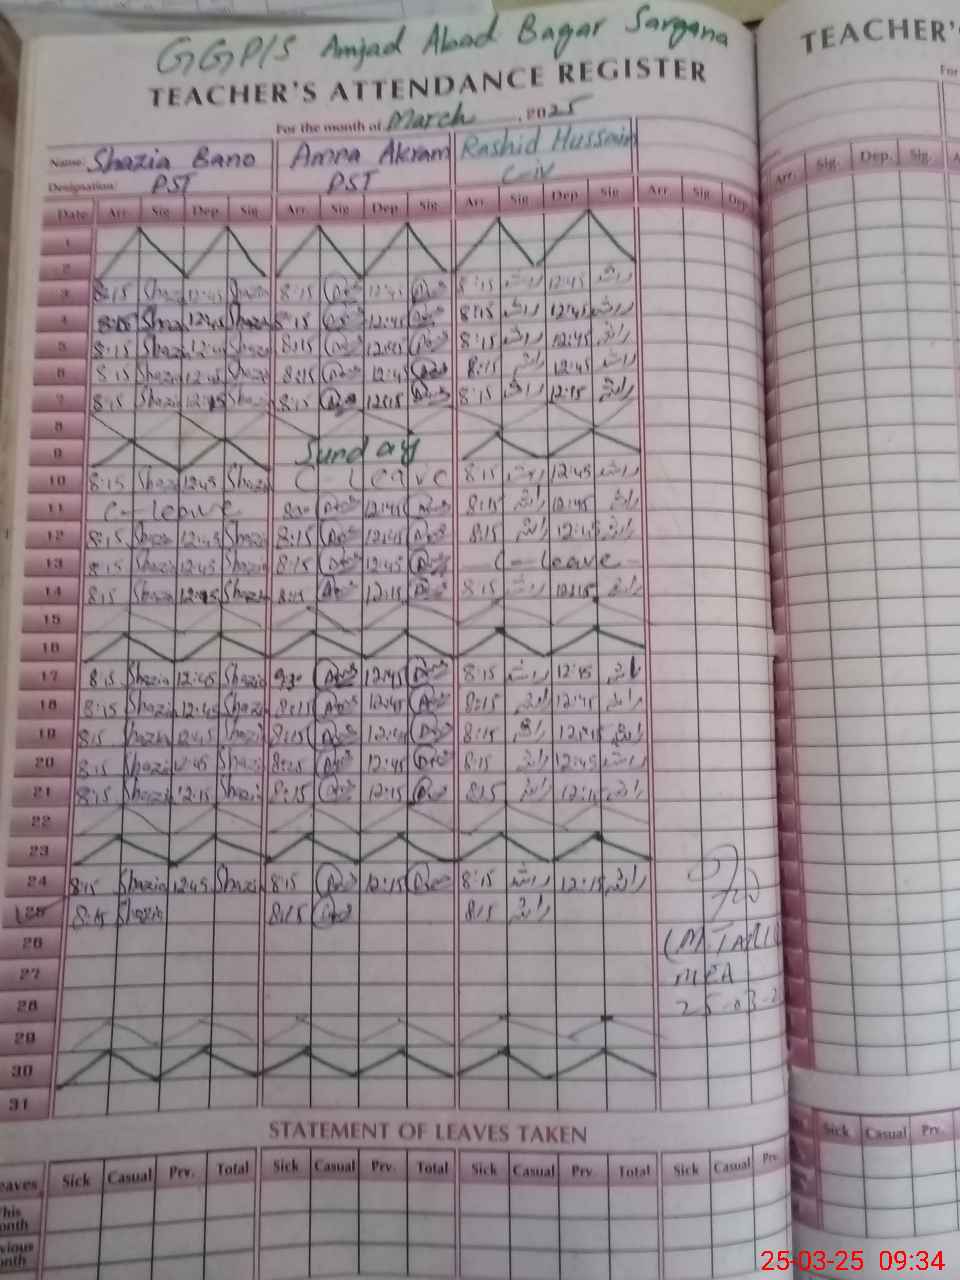 GGP/S Amjad Abad Bagar Sargana
TEACHER'S ATTENDANCE REGISTER
For the month of March, 2025
Name: Shazia Bano Amna Akram Rashid Hussain
Designation: PST PST C-iv
Date Arr. Sig. Dep. Sig. Arr. Sig. Dep. Sig. Arr. Sig. Dep. Sig. Arr. Sig. Dep.
1
2
3 8:15 Shazia 12:45 Shazia 8:15 12:45 8:15 راشد 12:45 راشد
4 8:15 Shazia 12:45 Shazia 8:15 12:45 8:15 راشد 12:45 راشد
5 8:15 Shazia 12:45 Shazia 8:15 12:45 8:15 راشد 12:45 راشد
6 8:15 Shazia 12:45 Shazia 8:15 12:45 8:15 راشد 12:45 راشد
7 8:15 Shazia 12:15 Shazia 8:15 12:15 8:15 راشد 12:15 راشد
8
9 Sunday
10 8:15 Shazia 12:45 Shazia C-Leave 8:15 راشد 12:45 راشد
11 C-leave 12:45 8:15 راشد 12:45 راشد
12 8:15 Shazia 12:45 Shazia 8:15 12:45 8:15 راشد 12:45 راشد
13 8:15 Shazia 12:45 Shazia 8:15 12:45 C-leave
14 8:15 Shazia 12:15 Shazia 8:15 12:15 8:15 راشد 12:15 راشد
15
16
17 8:15 Shazia 12:45 Shazia 9:30 12:45 8:15 راشد 12:45 راشد
18 8:15 Shazia 12:45 Shazia 8:15 12:45 8:15 راشد 12:45 راشد
19 8:15 Shazia 12:45 Shazia 8:15 12:45 8:15 راشد 12:45 راشد
20 8:15 Shazia 12:45 Shazia 8:15 12:45 8:15 راشد 12:45 راشد
21 8:15 Shazia 12:15 Shazia 8:15 12:15 8:15 راشد 12:15 راشد
22
23
24 8:15 Shazia 12:45 Shazia 8:15 12:15 8:15 راشد 12:15 راشد
25 8:15 Shazia 8:15 8:15 راشد
26
27 MEA
28 25-03-2
29
30
31
STATEMENT OF LEAVES TAKEN
eaves Sick Casual Prv. Total Sick Casual Prv. Total Sick Casual Prv. Total Sick Casual Prv.
This
onth
vious
onth
TEACHER'S
For
Arr. Sig. Dep. Sig.
Sick Casual Prv.
25-03-25 09:34